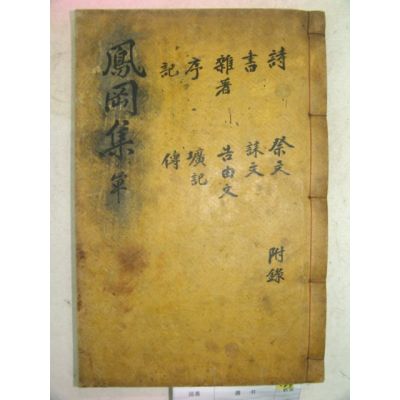 詩 祭文 附錄
書 誄文
雜著 告由文
序 壙記
記 傳
鳳岡集 單